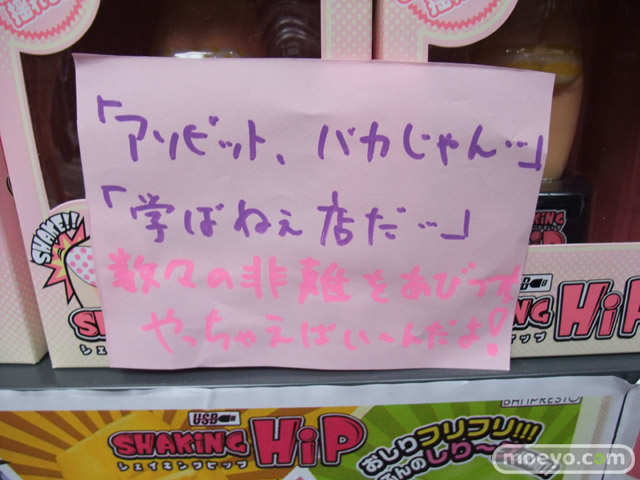 「アソビット、バカじゃん…」
「学ばねぇ店だ…」
数々の非難をあびつつ
やっちゃえばい〜んだよ!
SHAKE!!
SHAKING
シェイキングヒップ
SHAKING
HiP
BANPRESTO
USB
SHAKING HiP
シェイキングヒップ
おしりフリフリ!!!
moeyo.com